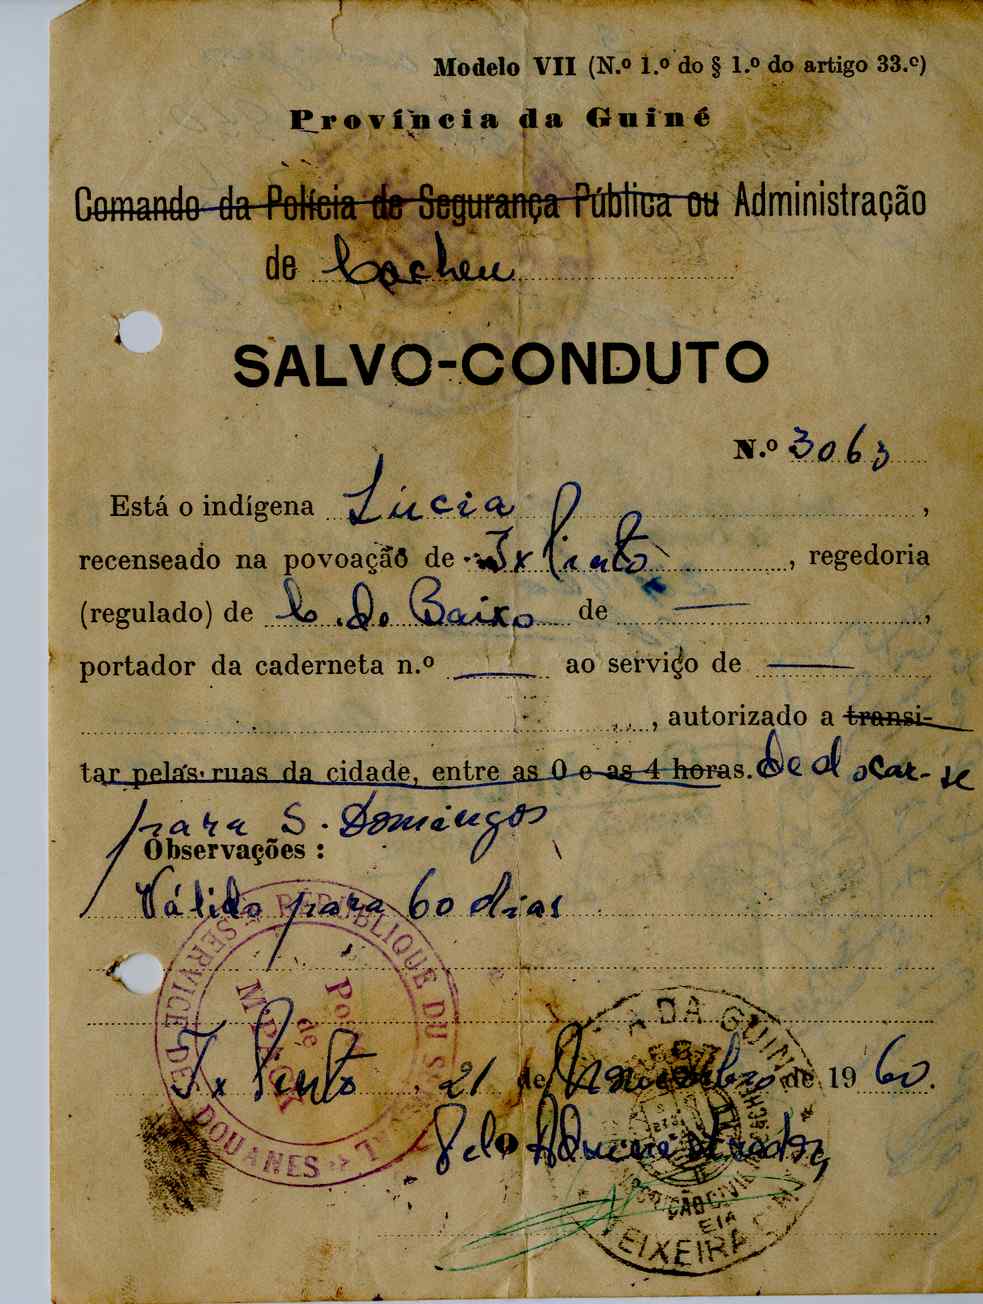 Modelo VII (N.º 1.º do § 1.º do artigo 33.º)
Província da Guiné
Comando da Polícia de Segurança Pública ou Administração
de Cacheu
SALVO-CONDUTO
N.º 3063
Está o indígena Lúcia ,
recenseado na povoação de Tx Pinto , regedoria
(regulado) de C. de Baixo de — ,
portador da caderneta n.º — ao serviço de —
, autorizado a transi-
tar pelas ruas da cidade, entre as 0 e as 4 horas. De dlocar-se
para S. Domingos
Observações :
Válido para 60 dias
SERVICE DES DOUANES REPUBLIQUE DU
Tx Pinto , 21 de Novembro de 1960.
Pelo Administrador,
DA GUINÉ
TEIXEIRA